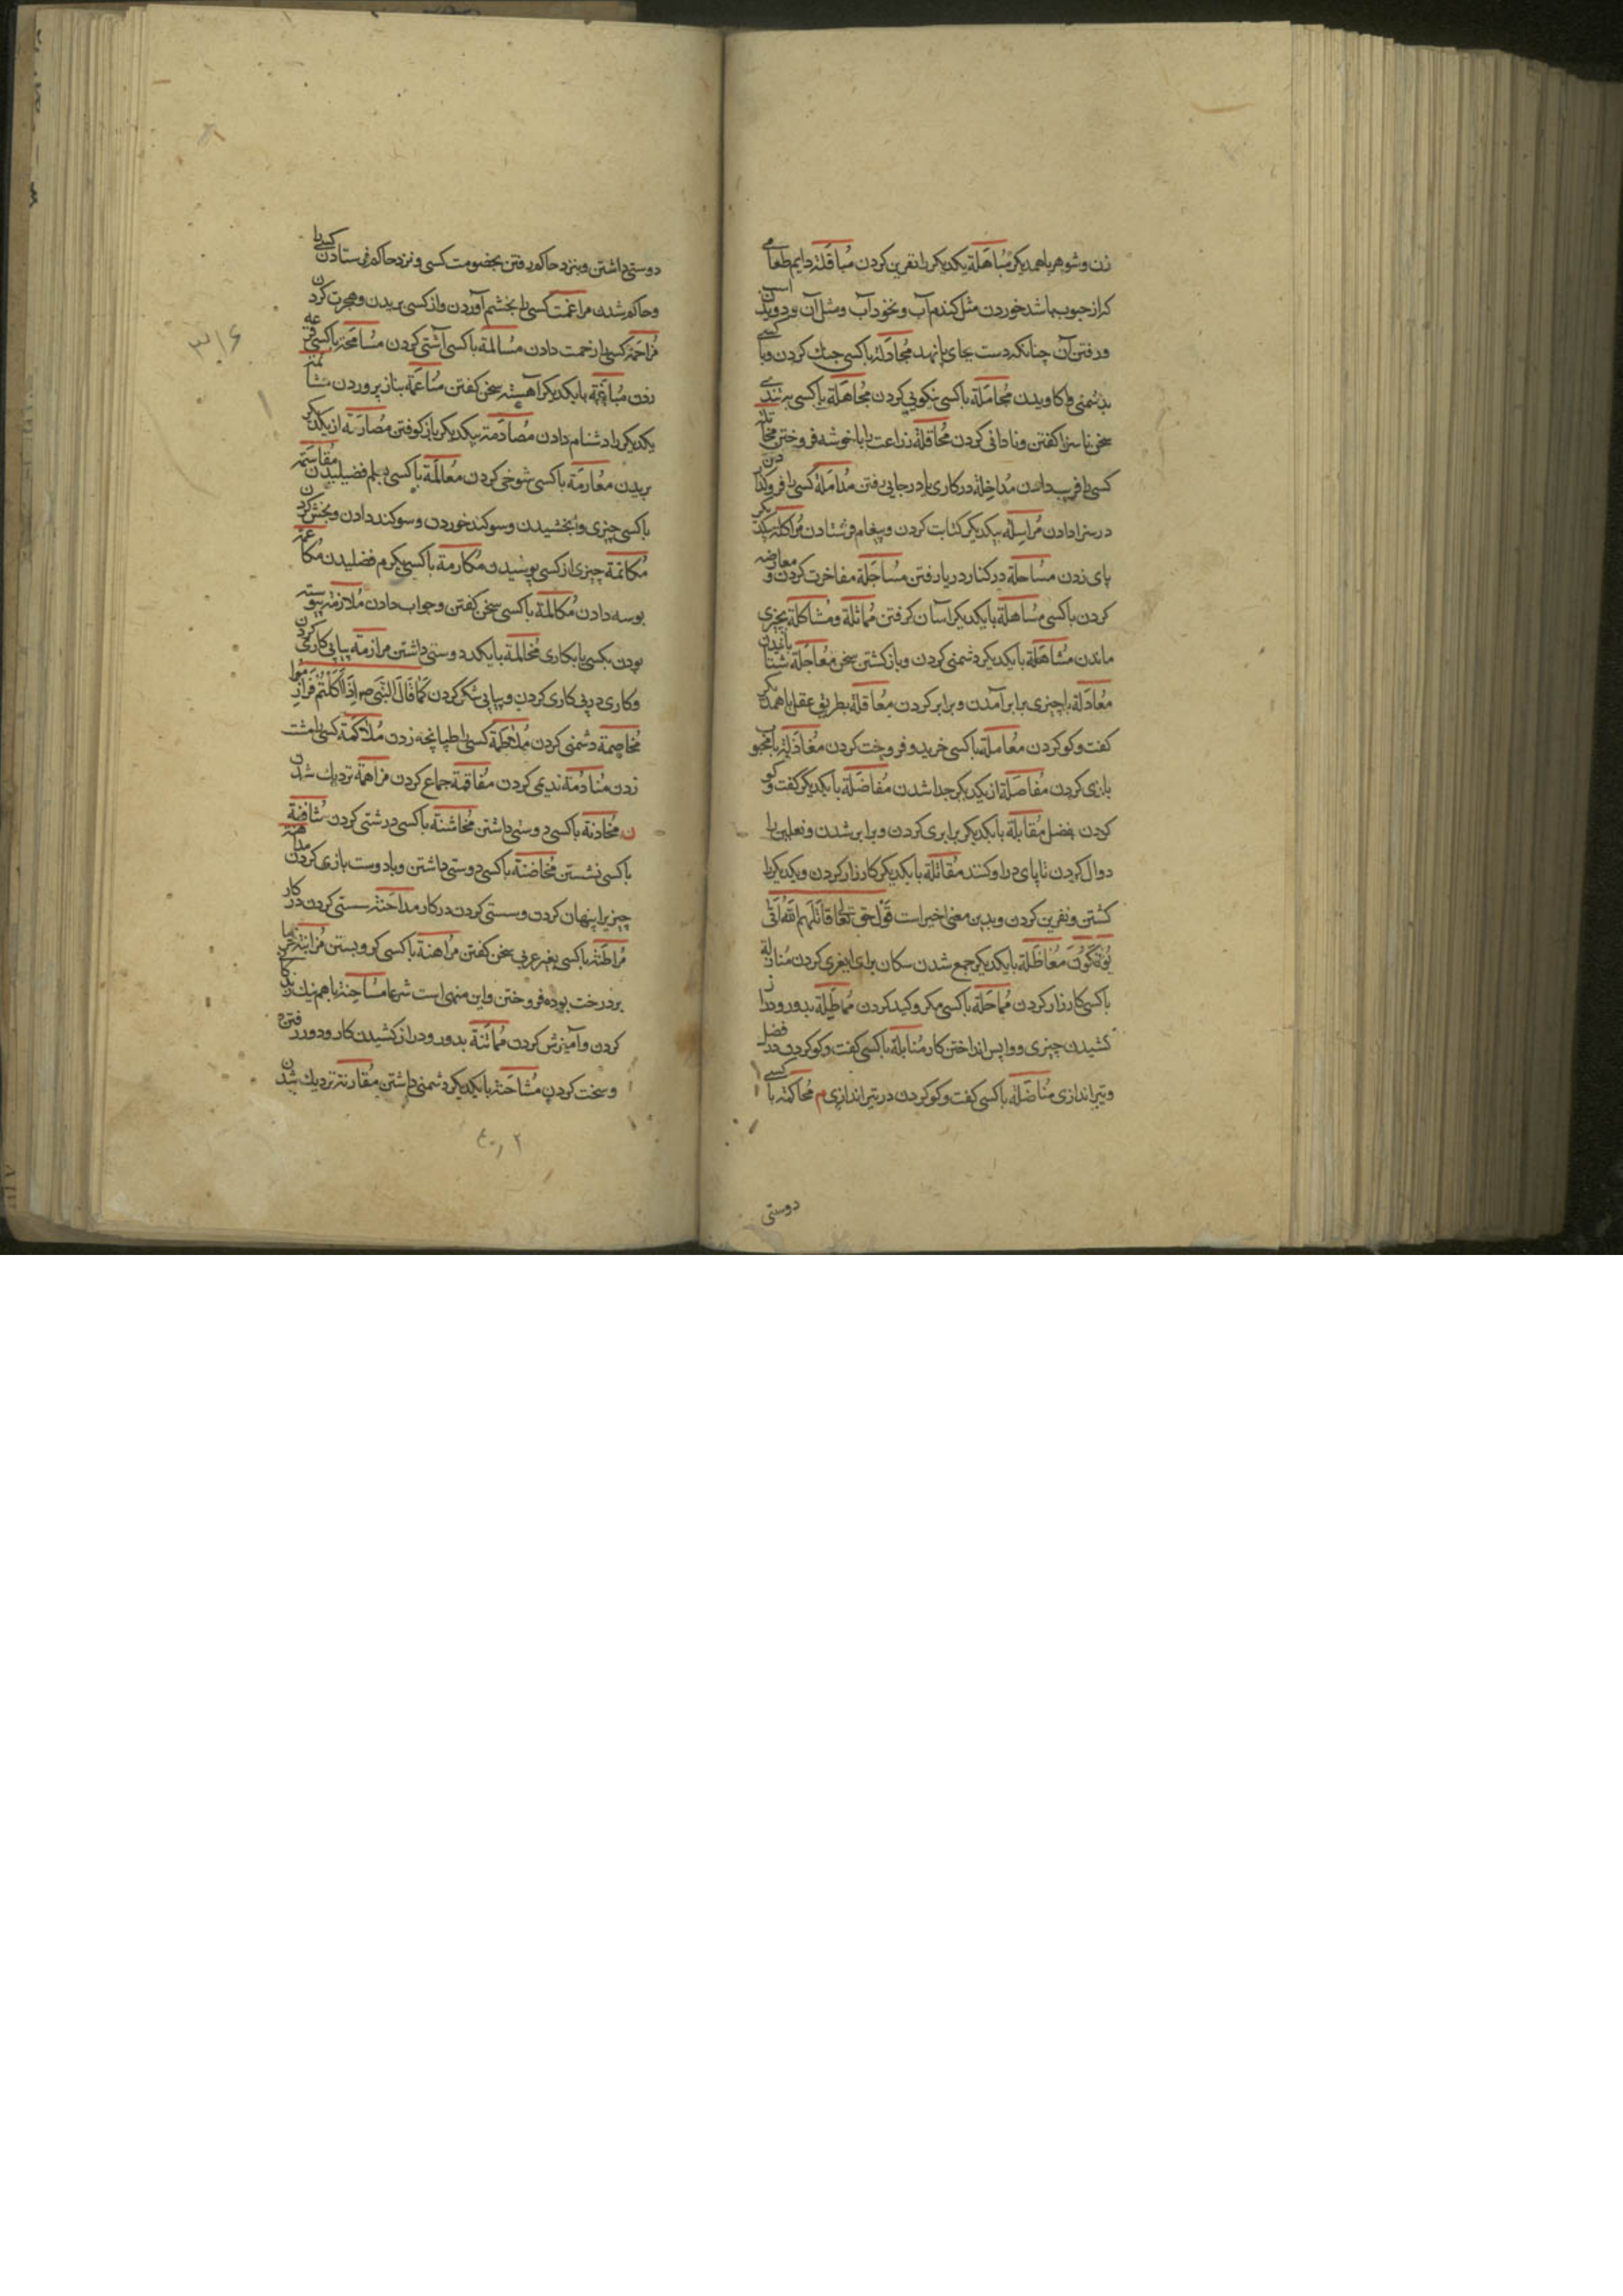 زن و شوهر باهمدیکر مُباهَلَة یکدیکر را نفرین کردن مُباقَلَة دایم طعامی
کز از حبوب باشد خوردن مثل کندم آب و نخود آب و مثل آن و دویدن اسب
و رفتن آن چنانکه دست بجای پا نهد مُجادَلَة باکسی جنك کردن و با کسی
بدشمنی واکاویدن مُجامَلَة باکسی نیکویی کردن مُجاهَلَة باکسی به تندی
سخن ناسزا کفتن و نادانی کردن مُحاقَلَة زراعت را با خوشه فروختن مُخاتلة
کسی را فریب دادن مُداخِلَة در کاری یا در جایی رفتن مُدامَلَة کسی را فروکذا
در سزا دادن مُراسِلَة بیکدیکر کتابت کردن و پیغام فرستادن مُراکلة یکدیکر
پای زدن مساحلَة در کنار دریا رفتن مُساجَلَة مفاخرت کردن و معارضه
کردن باکسی مُساهلَة بایکدیکر آسان کرفتن مُماثلَة و مُشاکلَة بچیزی
ماندن مُشاهَلَة بایکدیکر دشمنی کردن و بازکشتن سخن مُعاجَلَة شتابانیدن
مُعادَلَة با چیزی برابر آمدن و برابر کردن مُعاقلَة بطریق عقل باهمدیکر
کفت و کو کردن مُعامَلَة باکسی خرید و فروخت کردن مُغازلة با محبوب
بازی کردن مُفاصَلَة از یکدیکر جدا شدن مُفاضَلَة بایکدیکر کفت و کو
کردن بفضل مُقابلَة بایکدیکر برابری کردن و برابر شدن و نعلین را
دوال کردن تا پای در او کنند مُقاتلَة بایکدیکر کارزار کردن و یکدیکر را
کشتن و نفرین کردن و بدین معنی اخیر است قَوْل حق تعالی قاتَلَهُم اللّهُ أنّی
یُؤفَکُونَ مُعاظَلَة بایکدیکر جمع شدن سکان برای کردن مُنازلة
باکسی کارزار کردن مُماحَلَة باکسی مکر و کید کردن مُماطِلَة بدور و دراز
کشیدن چیزی و واپس انداختن کار مُنابلَة باکسی کفت و کو کردن در فضل
و تیراندازی مُناضَلَة باکسی کفت و کو کردن در تیراندازی م مُحاکمَة با کسی
دوستی
دوستی داشتن و بنزد حاکم رفتن بخصومت کسی و نزد حاکم فرستادن کسی را
و حاکم شدن مراغمت کسی را بخشم آوردن و از کسی بریدن و هجرت کردن
مُزاحَمَة کسی را زحمت دادن مُسالمَة باکسی آشتی کردن مُسامحة باکسی قرعه
زدن مُباغمَة بایکدیکر آهسته سخن کفتن مُناعَمَة بناز پروردن مُشاتمة
یکدیکر را دشنام دادن مُصادَمَة بیکدیکر باز کوفتن مُصارمَة از یکدیکر
بریدن مُعارمَة باکسی شوخی کردن مُعالمَة باکسی بعلم فضیلیدن مُقاسمة
باکسی چیزی وابخشیدن و سوکند خوردن و سوکند دادن و بخش کردن
مُکاتمَة چیزی از کسی پوشیدن مُکارمَة باکسی بکرم فضلیدن مُکاعمة
بوسه دادن مُکالَمَة باکسی سخن کفتن و جواب دادن مُلازمة پیوسته
بودن بکسی یا بکاری مُخالمَة بایکدد دوستی داشتن مرازمَة پیاپی کاری کردن
و کاری در پی کاری کردن و پیاپی شکر کردن کَمَا قَالَ النَّبِی صم إِذَا أَکَلْتُمْ فَرَازِموا
مُخاصِمَة دشمنی کردن مُلاطمَة کسی را طپانچه زدن مُلاکمَة کسی را مشت
زدن مُنادَمَة ندیمی کردن مُفاقمَة جماع کردن مُزاهمَة نزدیك شدن
ن مُخادنَة باکسی دوستی داشتن مُخاشنَة باکسی درشتی کردن مُثافنَة
باکسی نشستن مُخاضنَة باکسی دوستی داشتن و با دوست بازی کردن مداهنة
چیزیرا پنهان کردن و سستی کردن در کار مداخنَة سستی کردن در کار
مُراطَنَة باکسی بغیر عربی سخن کفتن مُراهنَة باکسی کرو بستن مُزابنة خرما
بر درخت بوده فروختن و این منهی است شرعا مُساحِنَة باهم نیك
کردن و آمیزش کردن مُماتَنَة بدور و دراز کشیدن کار و دور رفتن
و سخت کردن مُشاحَنَة بایکدیکر دشمنی داشتن مُقارنَة نزدیك شدن